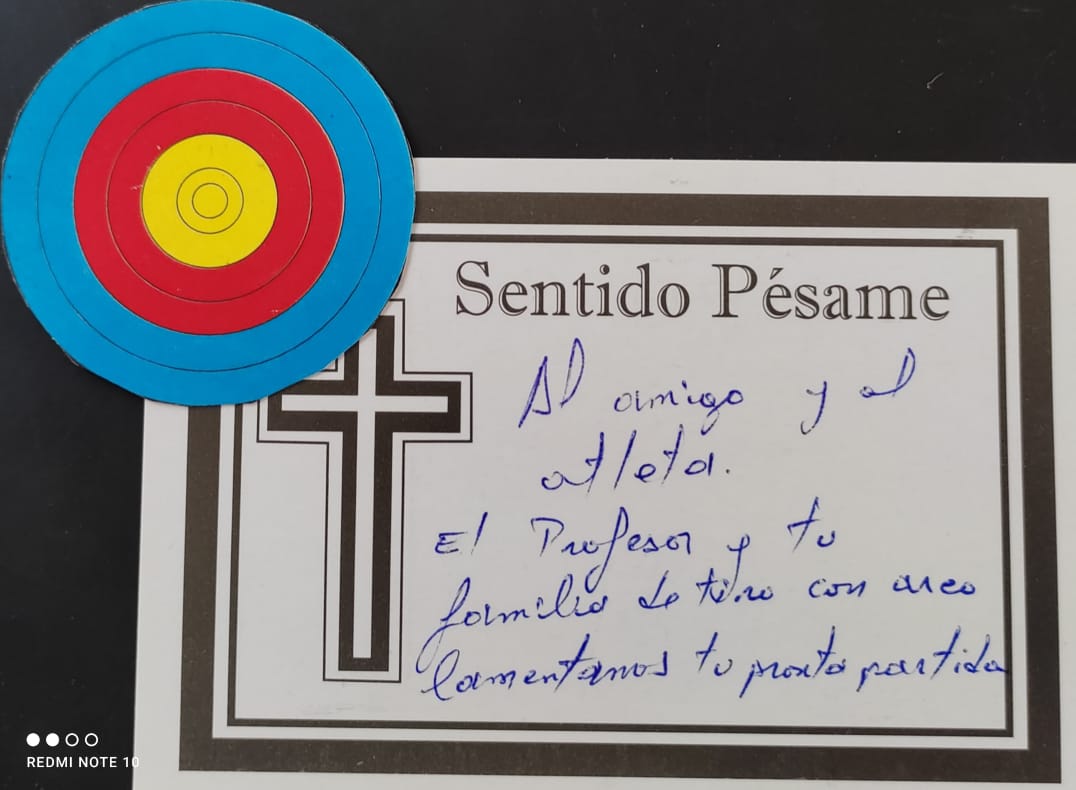 Sentido Pésame
Al amigo y al
atleta.
El Profesor y tu
familia de tiro con arco
lamentamos tu pronta partida
REDMI NOTE 10